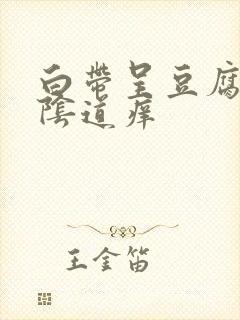 白帶呈豆腐
陰道痒
王金笛